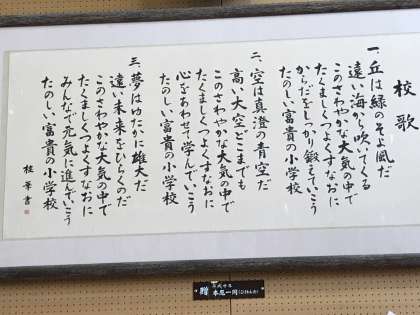 校歌
一、丘は緑のそよ風だ
遠い海から吹いてくる
このさわやかな大気の中で
たくましくつよくすなおに
からだをしっかり鍛えていこう
たのしい富貴の小学校
二、空は真澄の青空だ
高い大空どこまでも
このさわやかな大気の中で
たくましくつよくすなおに
心をあわせて学んでいこう
たのしい富貴の小学校
三、夢はゆたかに雄大だ
遠い未来をひらくのだ
このさわやかな大気の中で
たくましくつよくすなおに
みんなで元気に進んでいこう
たのしい富貴の小学校
桂華書
贈